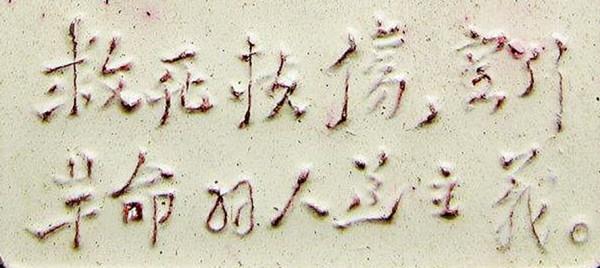 救死扶傷，實行
革命的人道主義。